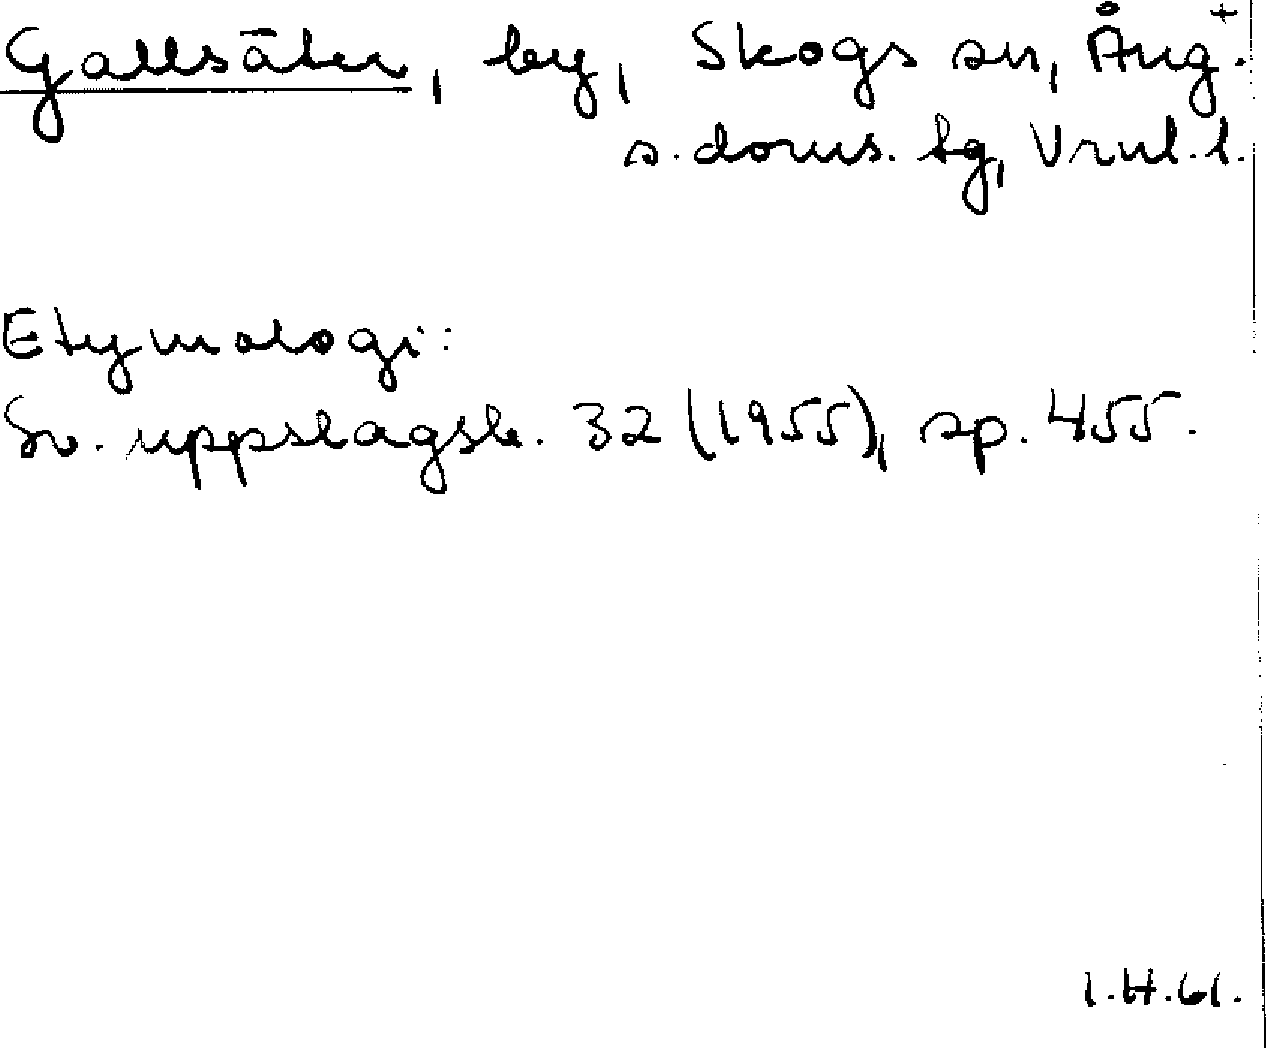 Gallsäter, by, Skogs sn, Ång. +
s. doms. tg, Vrnl. l.
Etymologi:
Sv. uppslagsb. 32 (1955), sp. 455.
I.H.61.